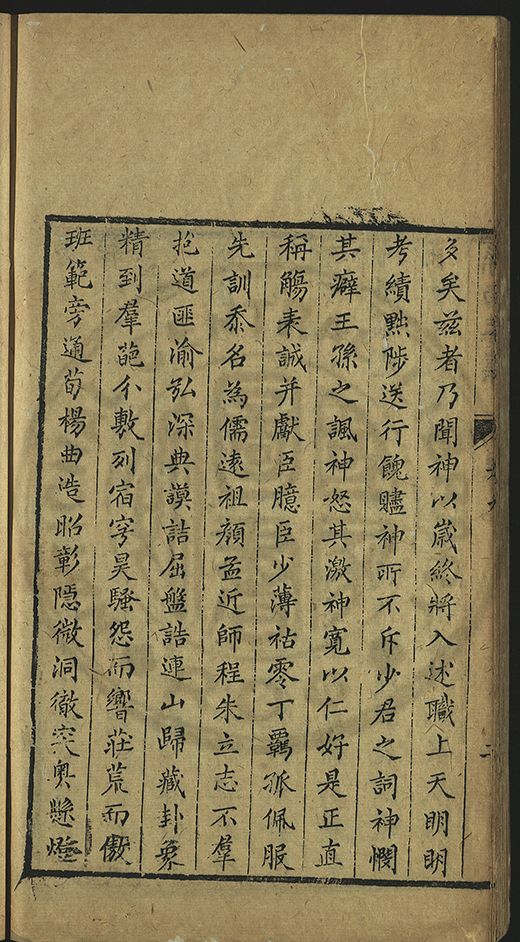 多矣茲者乃聞神以歲終將入述職上天明明
考績黜陟送行餽贐神所不斥少君之詞神憫
其癖王孫之諷神怒其激神寬以仁好是正直
稱觴表誠并獻臣臆臣少薄祜零丁羈孤佩服
先訓忝名為儒遠祖顏孟近師程朱立志不羣
抱道匪渝弘深典謨詰屈盤誥連山歸藏卦象
精到羣葩分敷列宿穹昊騷怨而響荘荒而傲
班範旁通荀楊曲造昭彰隱微洞徹突奧懸燈